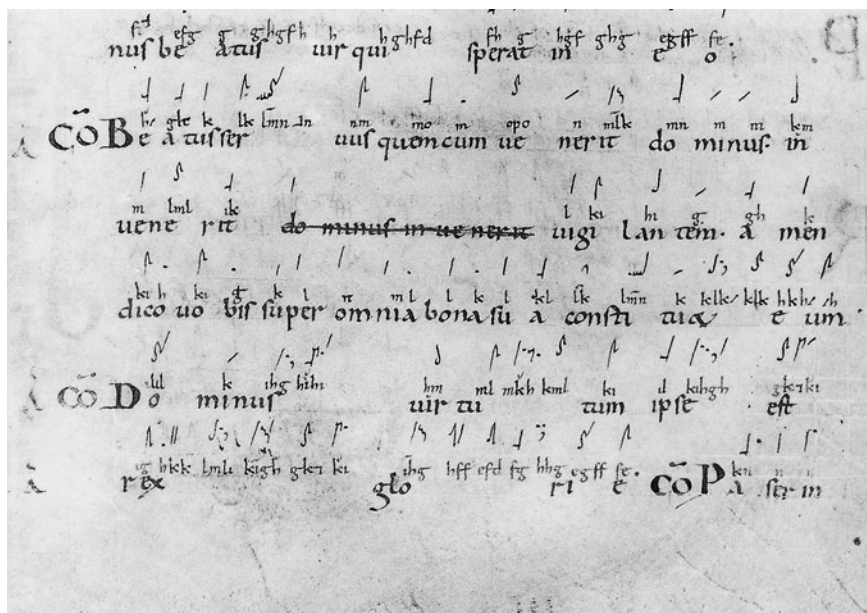 f d efg g ghgfh h hghfd fh g hgf ghg egff fe.
nus be atus uir qui sperat in e o
h gke k lk lmn nm mo m opo n mlk mn m m km
CŌ Be a tus ser uus quem cum ue nerit do minus in
m lml ik l ki hi g gh k
uene rit do minus in ue nerit uigi lan tem. a men
ki h ki g k l n m l l k l kl lk lmn k klk klk hkh h
dico uo bis super omnia bona su a consti tu& e um
k ihg hm ml mkh kml ki il kihgh
CŌ Do minus uir tu tum ipse est
ig hkk lmli kigh gki ki ihg hff efd fg hhg egff fe. kn n
rex glo ri e CŌ Pa ser in